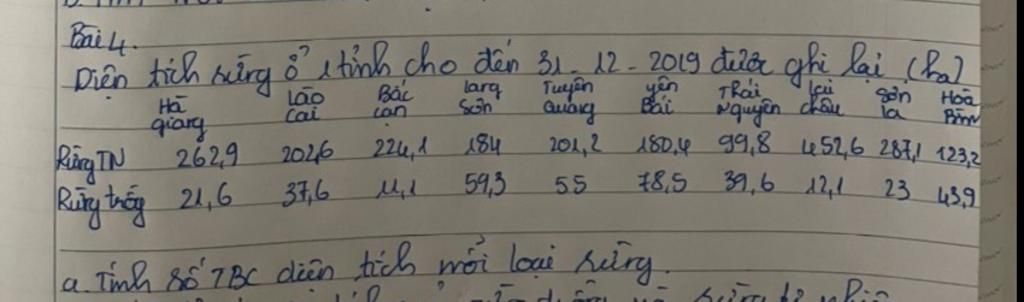 Bài 4.
Diện tích rừng ở 1 tỉnh cho đến 31-12-2019 được ghi lại (ha)
Hà giang Lão Cai Bắc cạn lạng Sơn Tuyên Quang yên Bái Thái Nguyên lai châu Sơn la Hoà Bình
Rừng TN 262,9 202,6 224,1 184 201,2 180,4 99,8 452,6 287,1 123,2
Rừng trồng 21,6 37,6 11,1 59,3 55 78,5 39,6 12,1 23 43,9
a. Tính số TBC diện tích mỗi loại rừng.